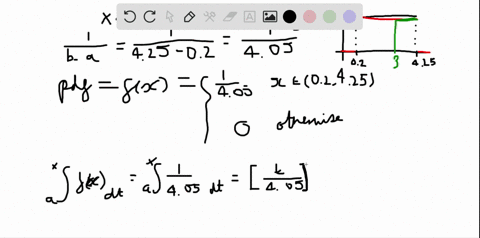 X
1/(b-a) = 1/(4.25-0.2) = 1/4.05
0.2 3 4.25
pdf = f(x) = { 1/4.05 x ∈ (0.2, 4.25)
0 otherwise
a∫x f(x) dt = a∫x 1/4.05 dt = [t/4.05]